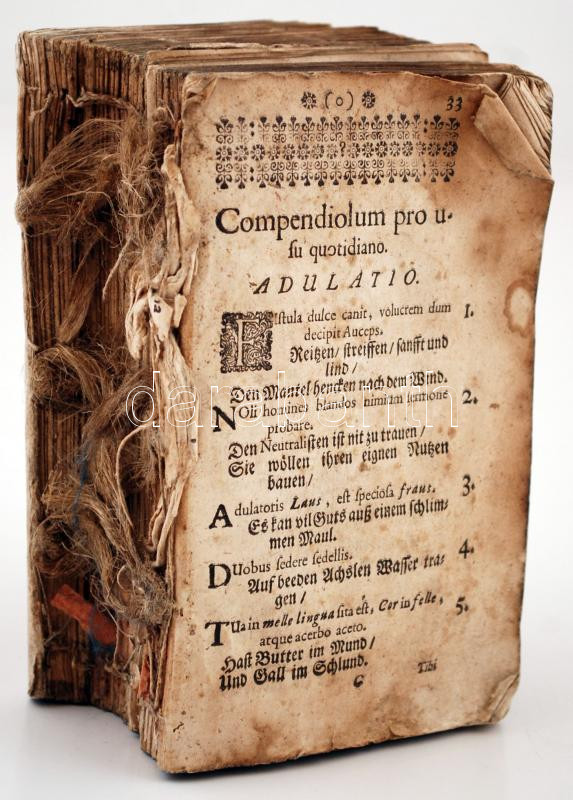 (o) 33
Compendiolum pro u-
su quotidiano.
ADULATIO.
FIstula dulce canit, volucrem dum 1.
decipit Auceps.
Reitzen/ streiffen/ sanfft und
lind/
Den Mantel hencken nach dem Wind.
NOli homines blandos nimium sermone 2.
probare.
Den Neutralisten ist nit zu trauen/
Sie wöllen ihren eignen Nutzen
bauen/
Adulatoris Laus, est speciosa fraus. 3.
Es kan vil Guts auß einem schlim-
men Maul.
DUobus sedere sedellis. 4.
Auf beeden Achslen Wasser tra-
gen/
TUa in melle lingua sita est, Cor in felle, 5.
atque acerbo aceto.
Hast Butter im Mund/
Und Gall im Schlund.
C Tibi
darabanth